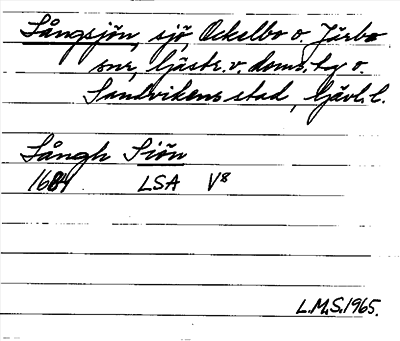 Långsjön, sjö, Ockelbo o. Järbo
snr, Gästr. v. doms. hg o.
Sandvikens stad, Gävl. l.
Långh Siön
1684 LSA V8
L.M.S. 1965.